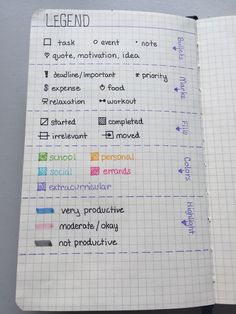 LEGEND
task event note
quote, motivation, idea
Bullets
deadline/important * priority
$ expense food
relaxation workout
Marks
started completed
irrelevant moved
Fills
school personal
social errands
extracurricular
Colors
very productive
moderate/okay
not productive
Highlight